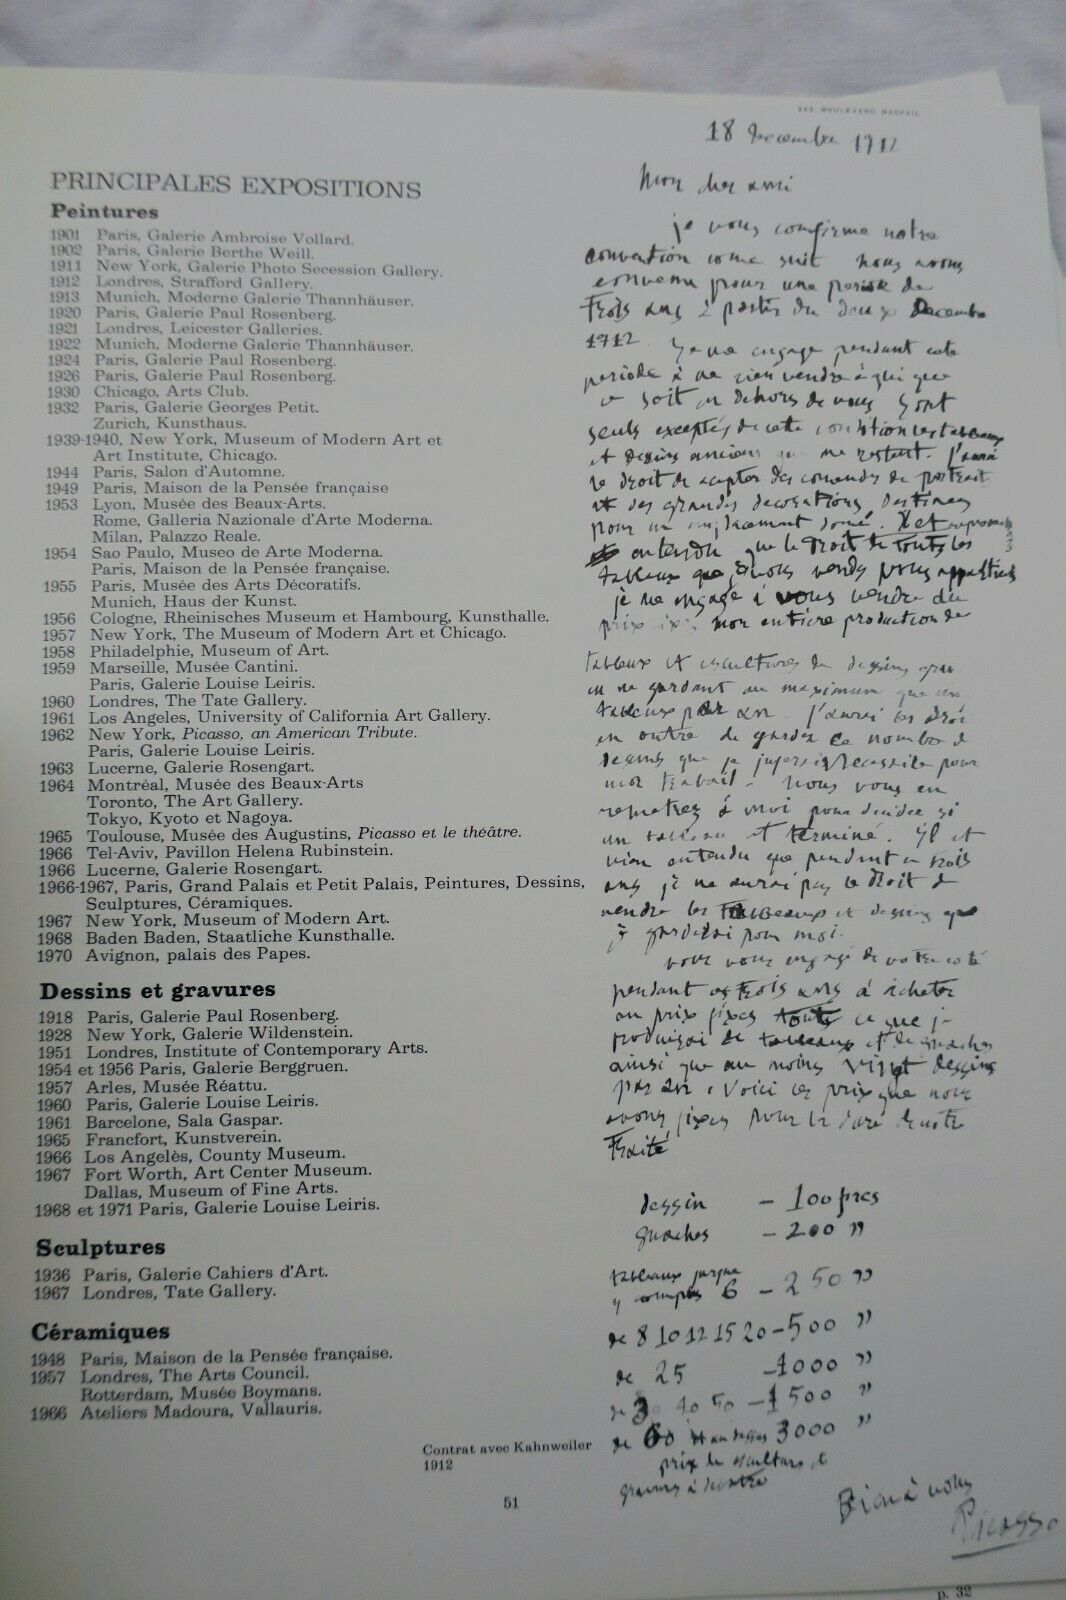 PRINCIPALES EXPOSITIONS
Peintures
1901 Paris, Galerie Ambroise Vollard.
1902 Paris, Galerie Berthe Weill.
1911 New York, Galerie Photo Secession Gallery.
1912 Londres, Strafford Gallery.
1913 Munich, Moderne Galerie Thannhäuser.
1920 Paris, Galerie Paul Rosenberg.
1921 Londres, Leicester Galleries.
1922 Munich, Moderne Galerie Thannhäuser.
1924 Paris, Galerie Paul Rosenberg.
1926 Paris, Galerie Paul Rosenberg.
1930 Chicago, Arts Club.
1932 Paris, Galerie Georges Petit.
Zurich, Kunsthaus.
1939-1940, New York, Museum of Modern Art et
Art Institute, Chicago.
1944 Paris, Salon d'Automne.
1949 Paris, Maison de la Pensée française
1953 Lyon, Musée des Beaux-Arts.
Rome, Galleria Nazionale d'Arte Moderna.
Milan, Palazzo Reale.
1954 Sao Paulo, Museo de Arte Moderna.
Paris, Maison de la Pensée française.
1955 Paris, Musée des Arts Décoratifs.
Munich, Haus der Kunst.
1956 Cologne, Rheinisches Museum et Hambourg, Kunsthalle.
1957 New York, The Museum of Modern Art et Chicago.
1958 Philadelphie, Museum of Art.
1959 Marseille, Musée Cantini.
Paris, Galerie Louise Leiris.
1960 Londres, The Tate Gallery.
1961 Los Angeles, University of California Art Gallery.
1962 New York, Picasso, an American Tribute.
Paris, Galerie Louise Leiris.
1963 Lucerne, Galerie Rosengart.
1964 Montréal, Musée des Beaux-Arts
Toronto, The Art Gallery.
Tokyo, Kyoto et Nagoya.
1965 Toulouse, Musée des Augustins, Picasso et le théâtre.
1966 Tel-Aviv, Pavillon Helena Rubinstein.
1966 Lucerne, Galerie Rosengart.
1966-1967, Paris, Grand Palais et Petit Palais, Peintures, Dessins,
Sculptures, Céramiques.
1967 New York, Museum of Modern Art.
1968 Baden Baden, Staatliche Kunsthalle.
1970 Avignon, palais des Papes.
Dessins et gravures
1918 Paris, Galerie Paul Rosenberg.
1928 New York, Galerie Wildenstein.
1951 Londres, Institute of Contemporary Arts.
1954 et 1956 Paris, Galerie Berggruen.
1957 Arles, Musée Réattu.
1960 Paris, Galerie Louise Leiris.
1961 Barcelone, Sala Gaspar.
1965 Francfort, Kunstverein.
1966 Los Angelès, County Museum.
1967 Fort Worth, Art Center Museum.
Dallas, Museum of Fine Arts.
1968 et 1971 Paris, Galerie Louise Leiris.
Sculptures
1936 Paris, Galerie Cahiers d'Art.
1967 Londres, Tate Gallery.
Céramiques
1948 Paris, Maison de la Pensée française.
1957 Londres, The Arts Council.
Rotterdam, Musée Boymans.
1966 Ateliers Madoura, Vallauris.
Contrat avec Kahnweiler
1912
51
242, BOULEVARD RASPAIL
18 Decembre 1912
Mon cher ami
je vous confirme notre
convention come suit nous avons
convenu pour une periode de
trois ans à partir du deux Decembre
1912. Je me engage pendant cete
periode à ne rien vendre à qui que
ce soit en dehors de vous Sont
seuls exceptés de cete condition les tableaux
et dessins anciens qui me restent. J'aurai
le droit de acepter des comandes de portrait
et des grandes decorations destinees
pour un emplacement doné.
entendu que le droit de toutes les
tableaux que vous vends vous appartient
je me engage à vous vendre au
prix mon entière production de
tableaux et esculptures
en ne gardant au maximum que cin
tableaux par an. J'aurai le droi
en outre de garder ce nombre de
dessins que je jujerai necessaire pour
mon travail. Nous vous en
remetrez à moi pour decider si
un tableau et terminé. Il et
vien entendu que pendant ces trois
ans je ne aurai pas le droit de
vendre les tableaux et dessins que
je garderai pour moi.
vous vous engagé de votre coté
pendant ces trois ans à acheter
au prix fixes ce que je
produirai de tableaux et de guaches
ainsi que au moins vingt dessins
par an. Voici les prix que nous
avons fixes pour la duré de notre
traité
dessin - 100 frcs
guaches - 200 "
tableaux jusque
y compris 6 - 250 "
de 8 10 12 15 20 - 500 "
de 25 - 1000 "
de 30 40 50 - 1500 "
de 60 et au dessus 3000 "
prix de esculture et
gravures à debatre
Bien à vous
Picasso
p. 32